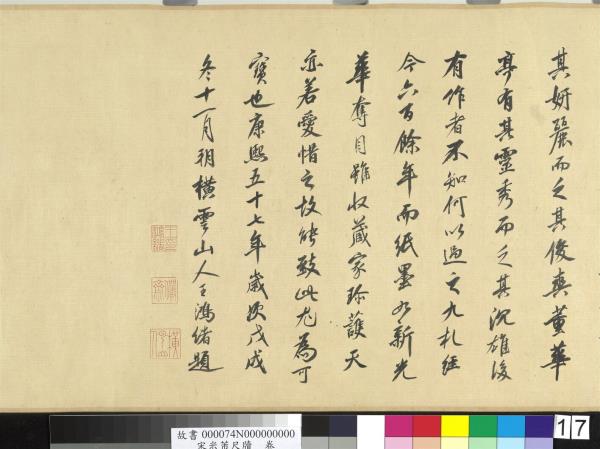 其妍麗而乏其俊爽黃華
亭有其靈秀而乏其沉雄後
有作者不知何以過之九札經
今六百餘年而紙墨如新光
華奪目雖收藏家珍護天
亦若愛惜之故能致此尤為可
寶也康熙五十七年歲次戊戌
冬十一月朔橫雲山人王鴻緒題
故書 000074N000000000
宋米芾尺牘 卷
17